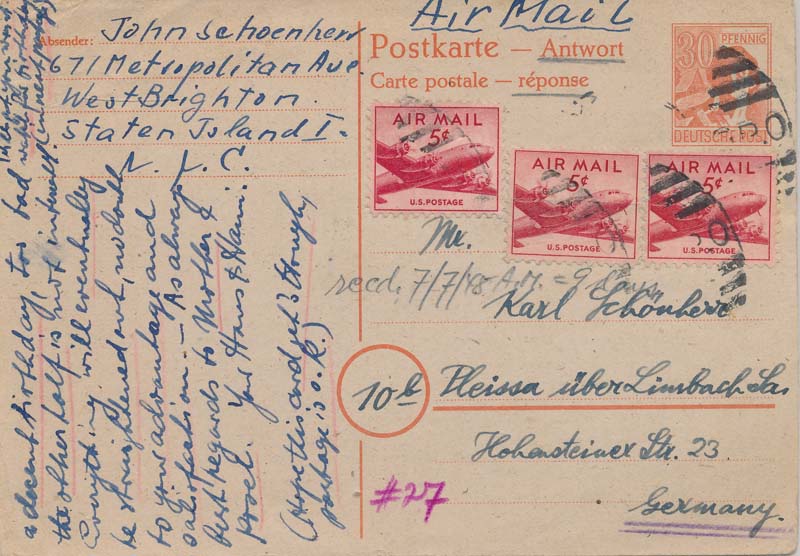 Air Mail
Absender: John Schoenherr
671 Metropolitan Ave.
West Brighton
Staten Island 1.
N.Y.C.
Postkarte — Antwort
Carte postale — réponse
30 PFENNIG
DEUTSCHE POST
AIR MAIL
5¢
U.S. POSTAGE
AIR MAIL
5¢
U.S. POSTAGE
AIR MAIL
5¢
U.S. POSTAGE
Mr.
recd. 7/7/48 A.M. = 9 Days
Karl Schönherr
10b Pleissa über Limbach Sa.
Hohensteiner Str. 23
Germany.
#27
a decent birthday too bad
the other half is not in itself.
Everything will eventually
be straightened out, no doubt
to your advantage and
satisfaction. — As always
best regards to Mother &
Rosel. Your Hans &
(Hope this card gets through,
postage is o.k.)